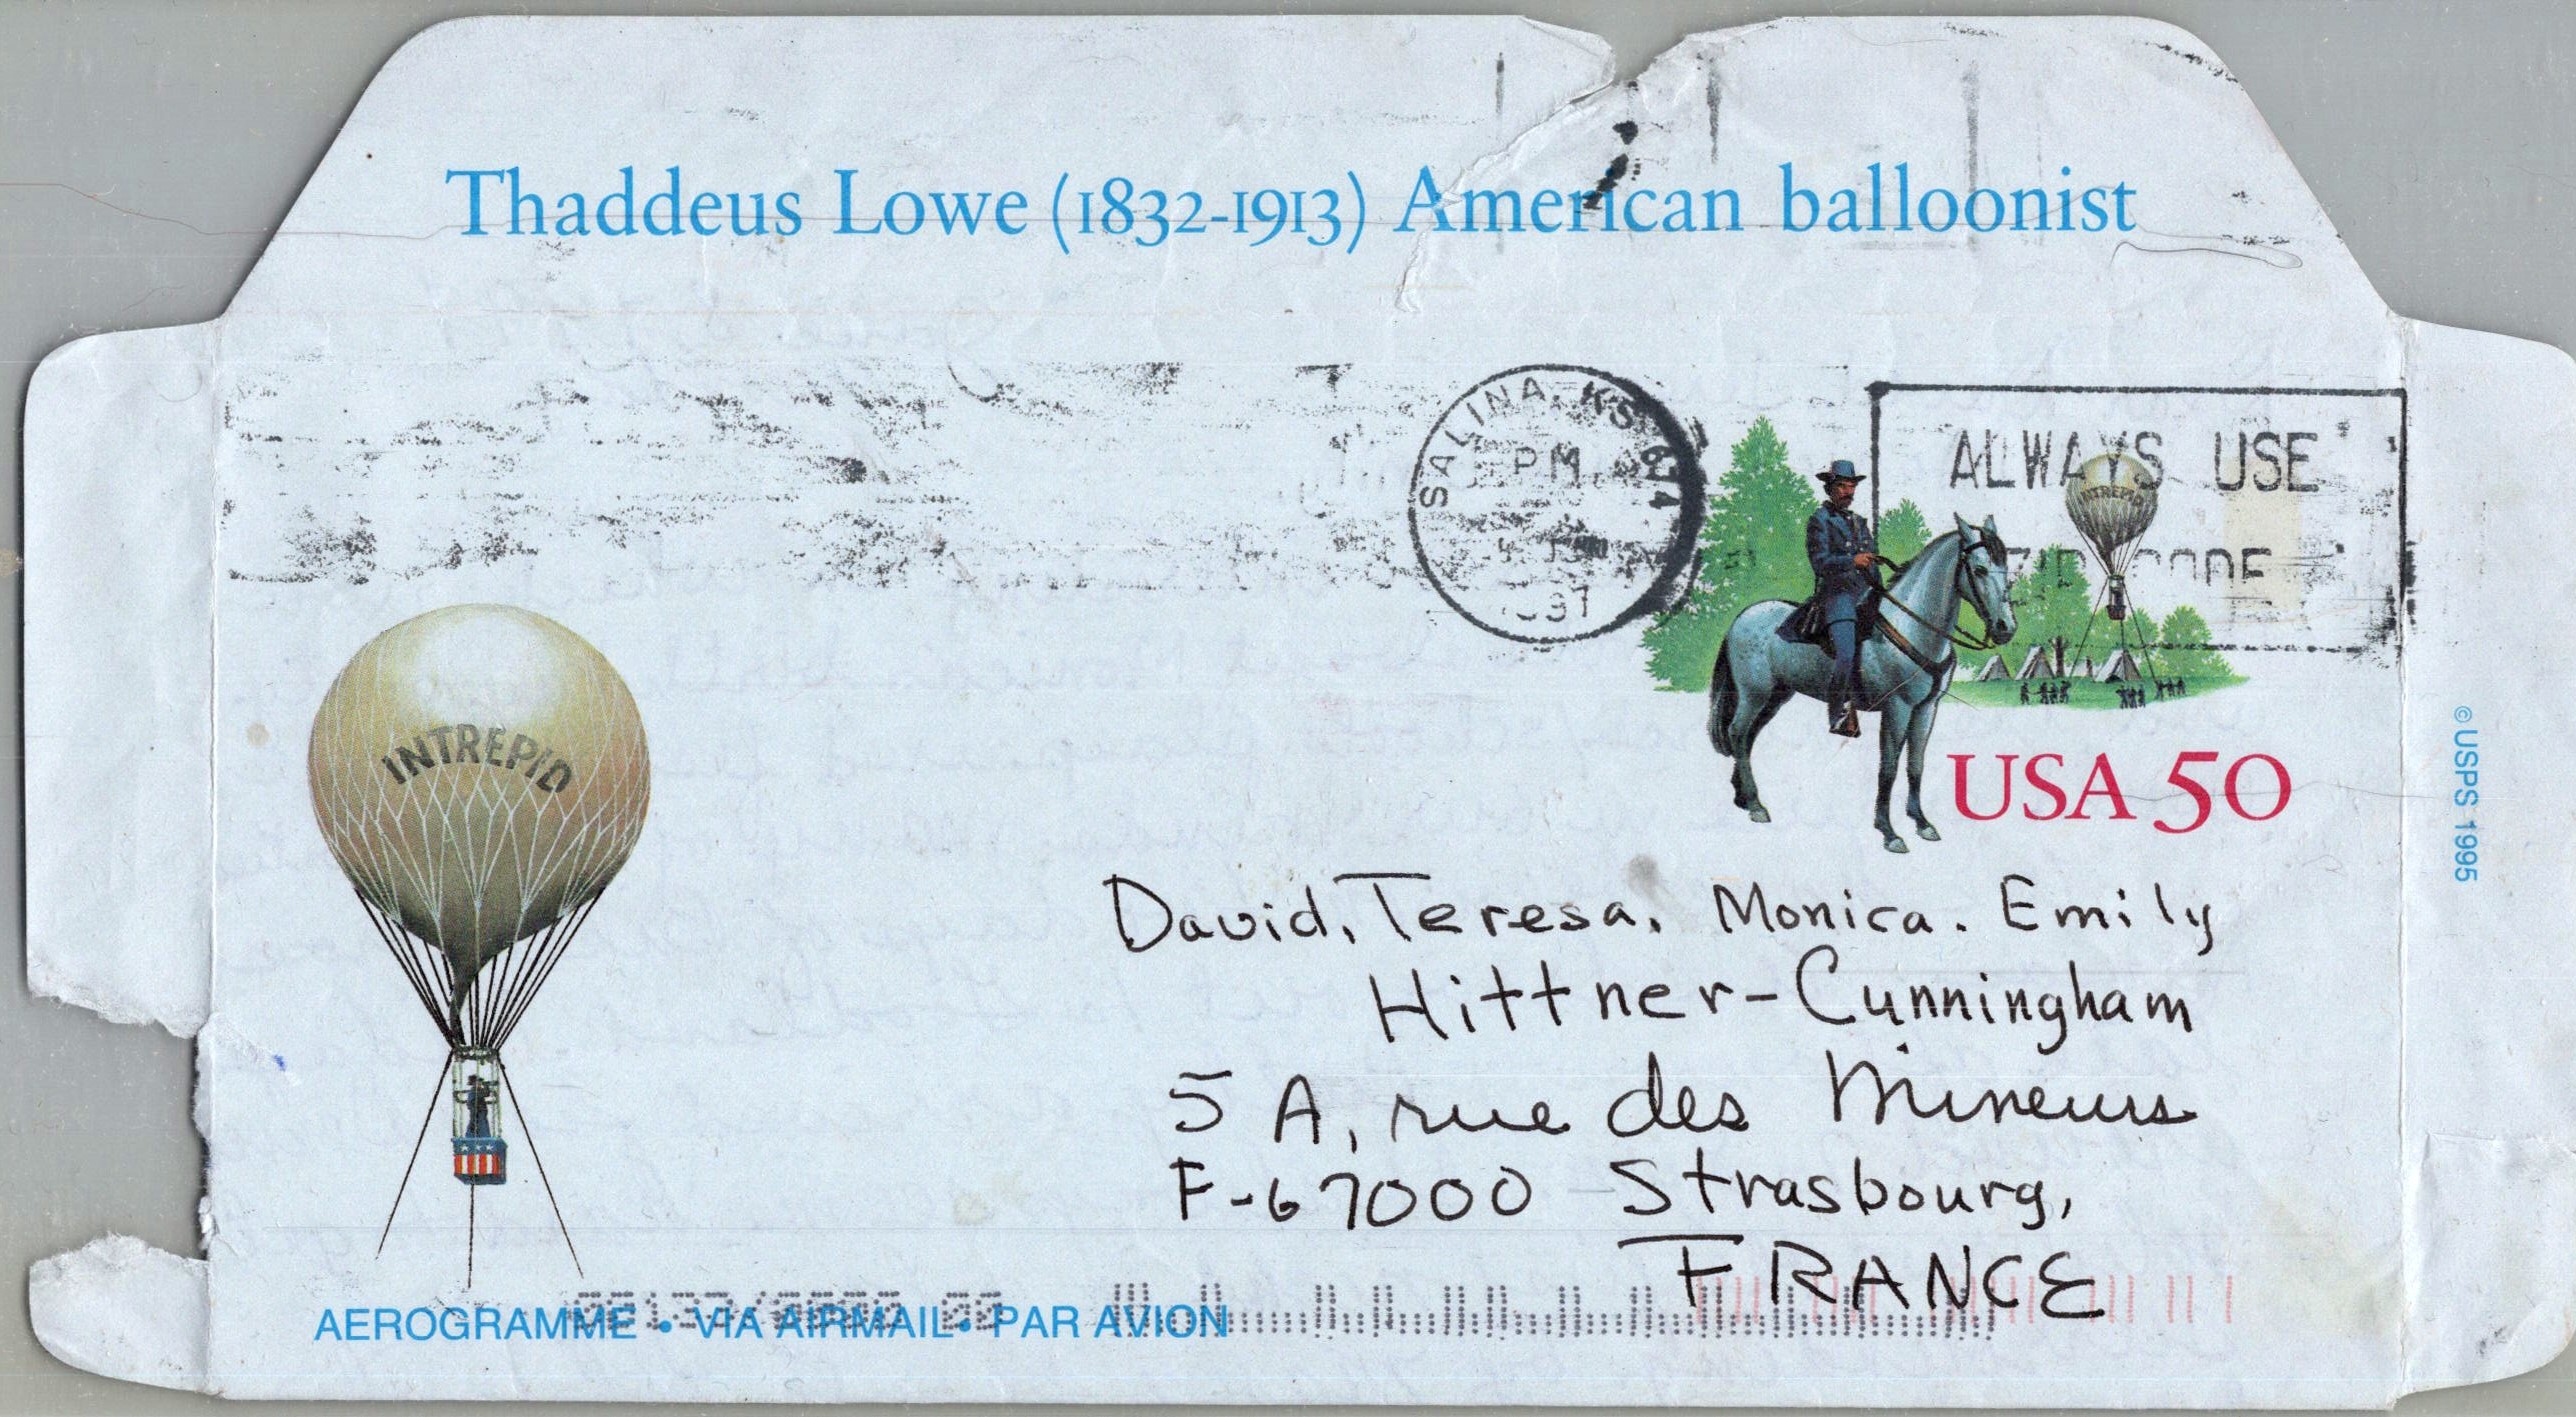 Thaddeus Lowe (1832-1913) American balloonist
SALINA, KS 674
PM
ALWAYS USE
ZIP CODE
INTREPID
INTREPID
USA 50
© USPS 1995
David, Teresa, Monica, Emily
Hittner-Cunningham
5 A, rue des Mineurs
F-67000 Strasbourg,
FRANCE
AEROGRAMME • VIA AIRMAIL • PAR AVION